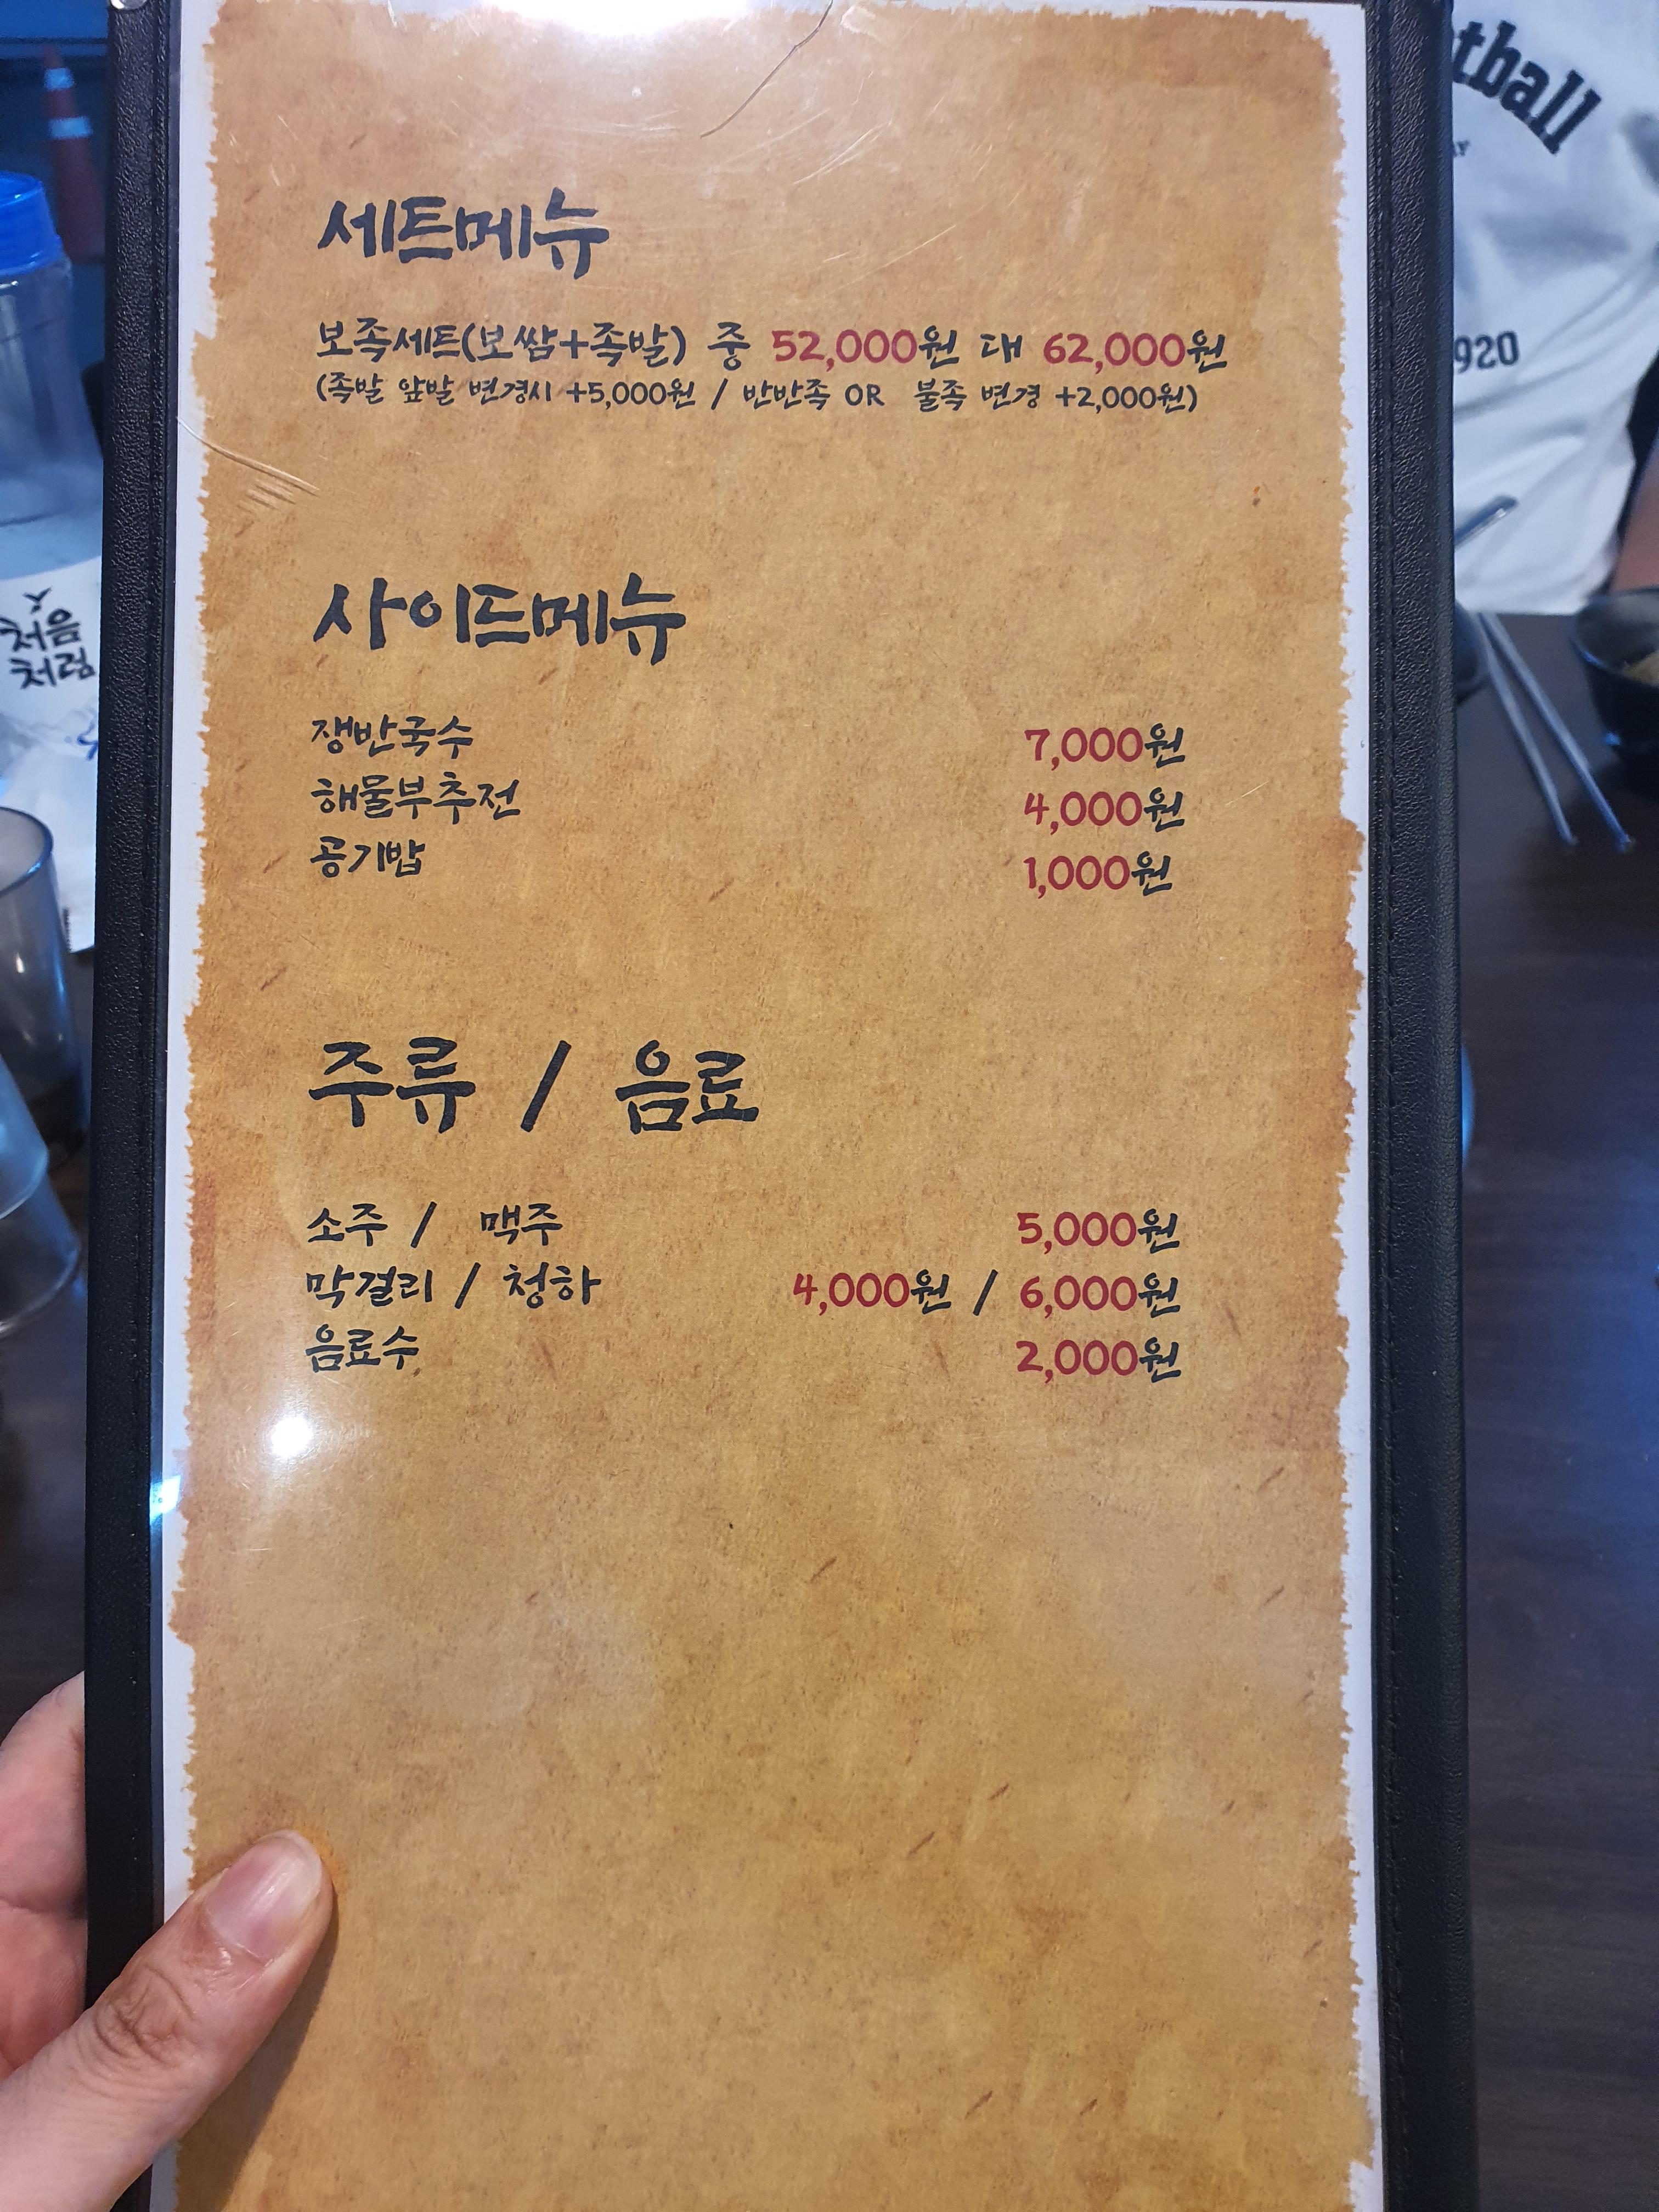 세트메뉴
보족세트(보쌈+족발) 중 52,000원 대 62,000원
(족발 앞발 변경시 +5,000원 / 반반족 OR 불족 변경 +2,000원)
사이드메뉴
쟁반국수 7,000원
해물부추전 4,000원
공기밥 1,000원
주류 / 음료
소주 / 맥주 5,000원
막걸리 / 청하 4,000원 / 6,000원
음료수 2,000원
처음
처럼
tball
920